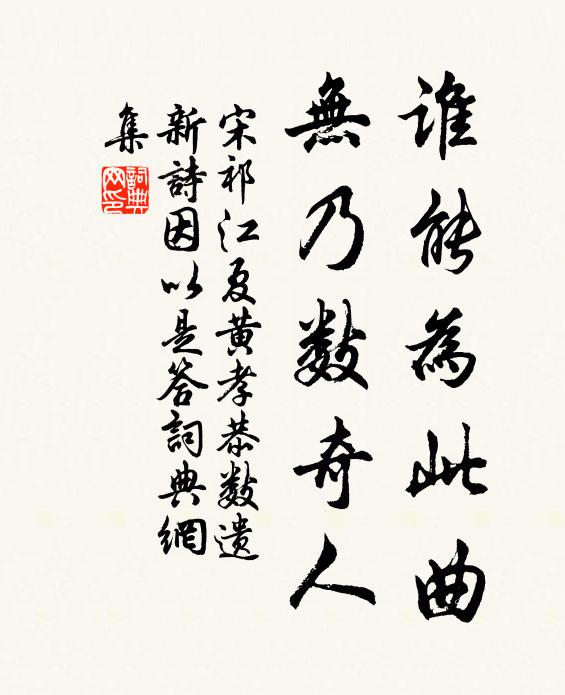 誰能為此曲
無乃數奇人
宋祁江夏黃孝恭數遺
新詩因以是答詞典網
集
詞典网印